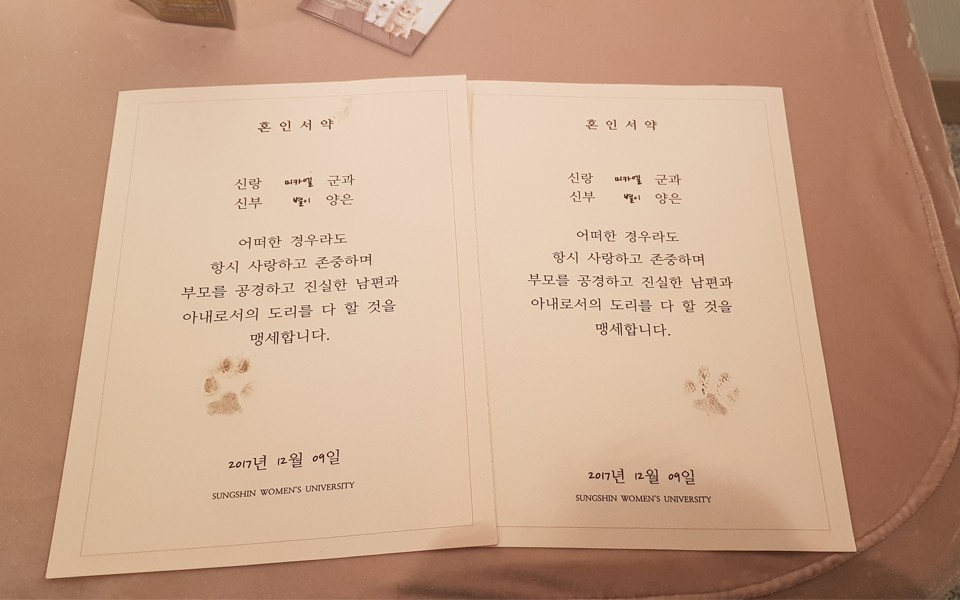 혼 인 서 약
신랑 미카엘 군과
신부 별이 양은
어떠한 경우라도
항시 사랑하고 존중하며
부모를 공경하고 진실한 남편과
아내로서의 도리를 다 할 것을
맹세합니다.
2017년 12월 09일
SUNGSHIN WOMEN'S UNIVERSITY
혼 인 서 약
신랑 미카엘 군과
신부 별이 양은
어떠한 경우라도
항시 사랑하고 존중하며
부모를 공경하고 진실한 남편과
아내로서의 도리를 다 할 것을
맹세합니다.
2017년 12월 09일
SUNGSHIN WOMEN'S UNIVERSITY